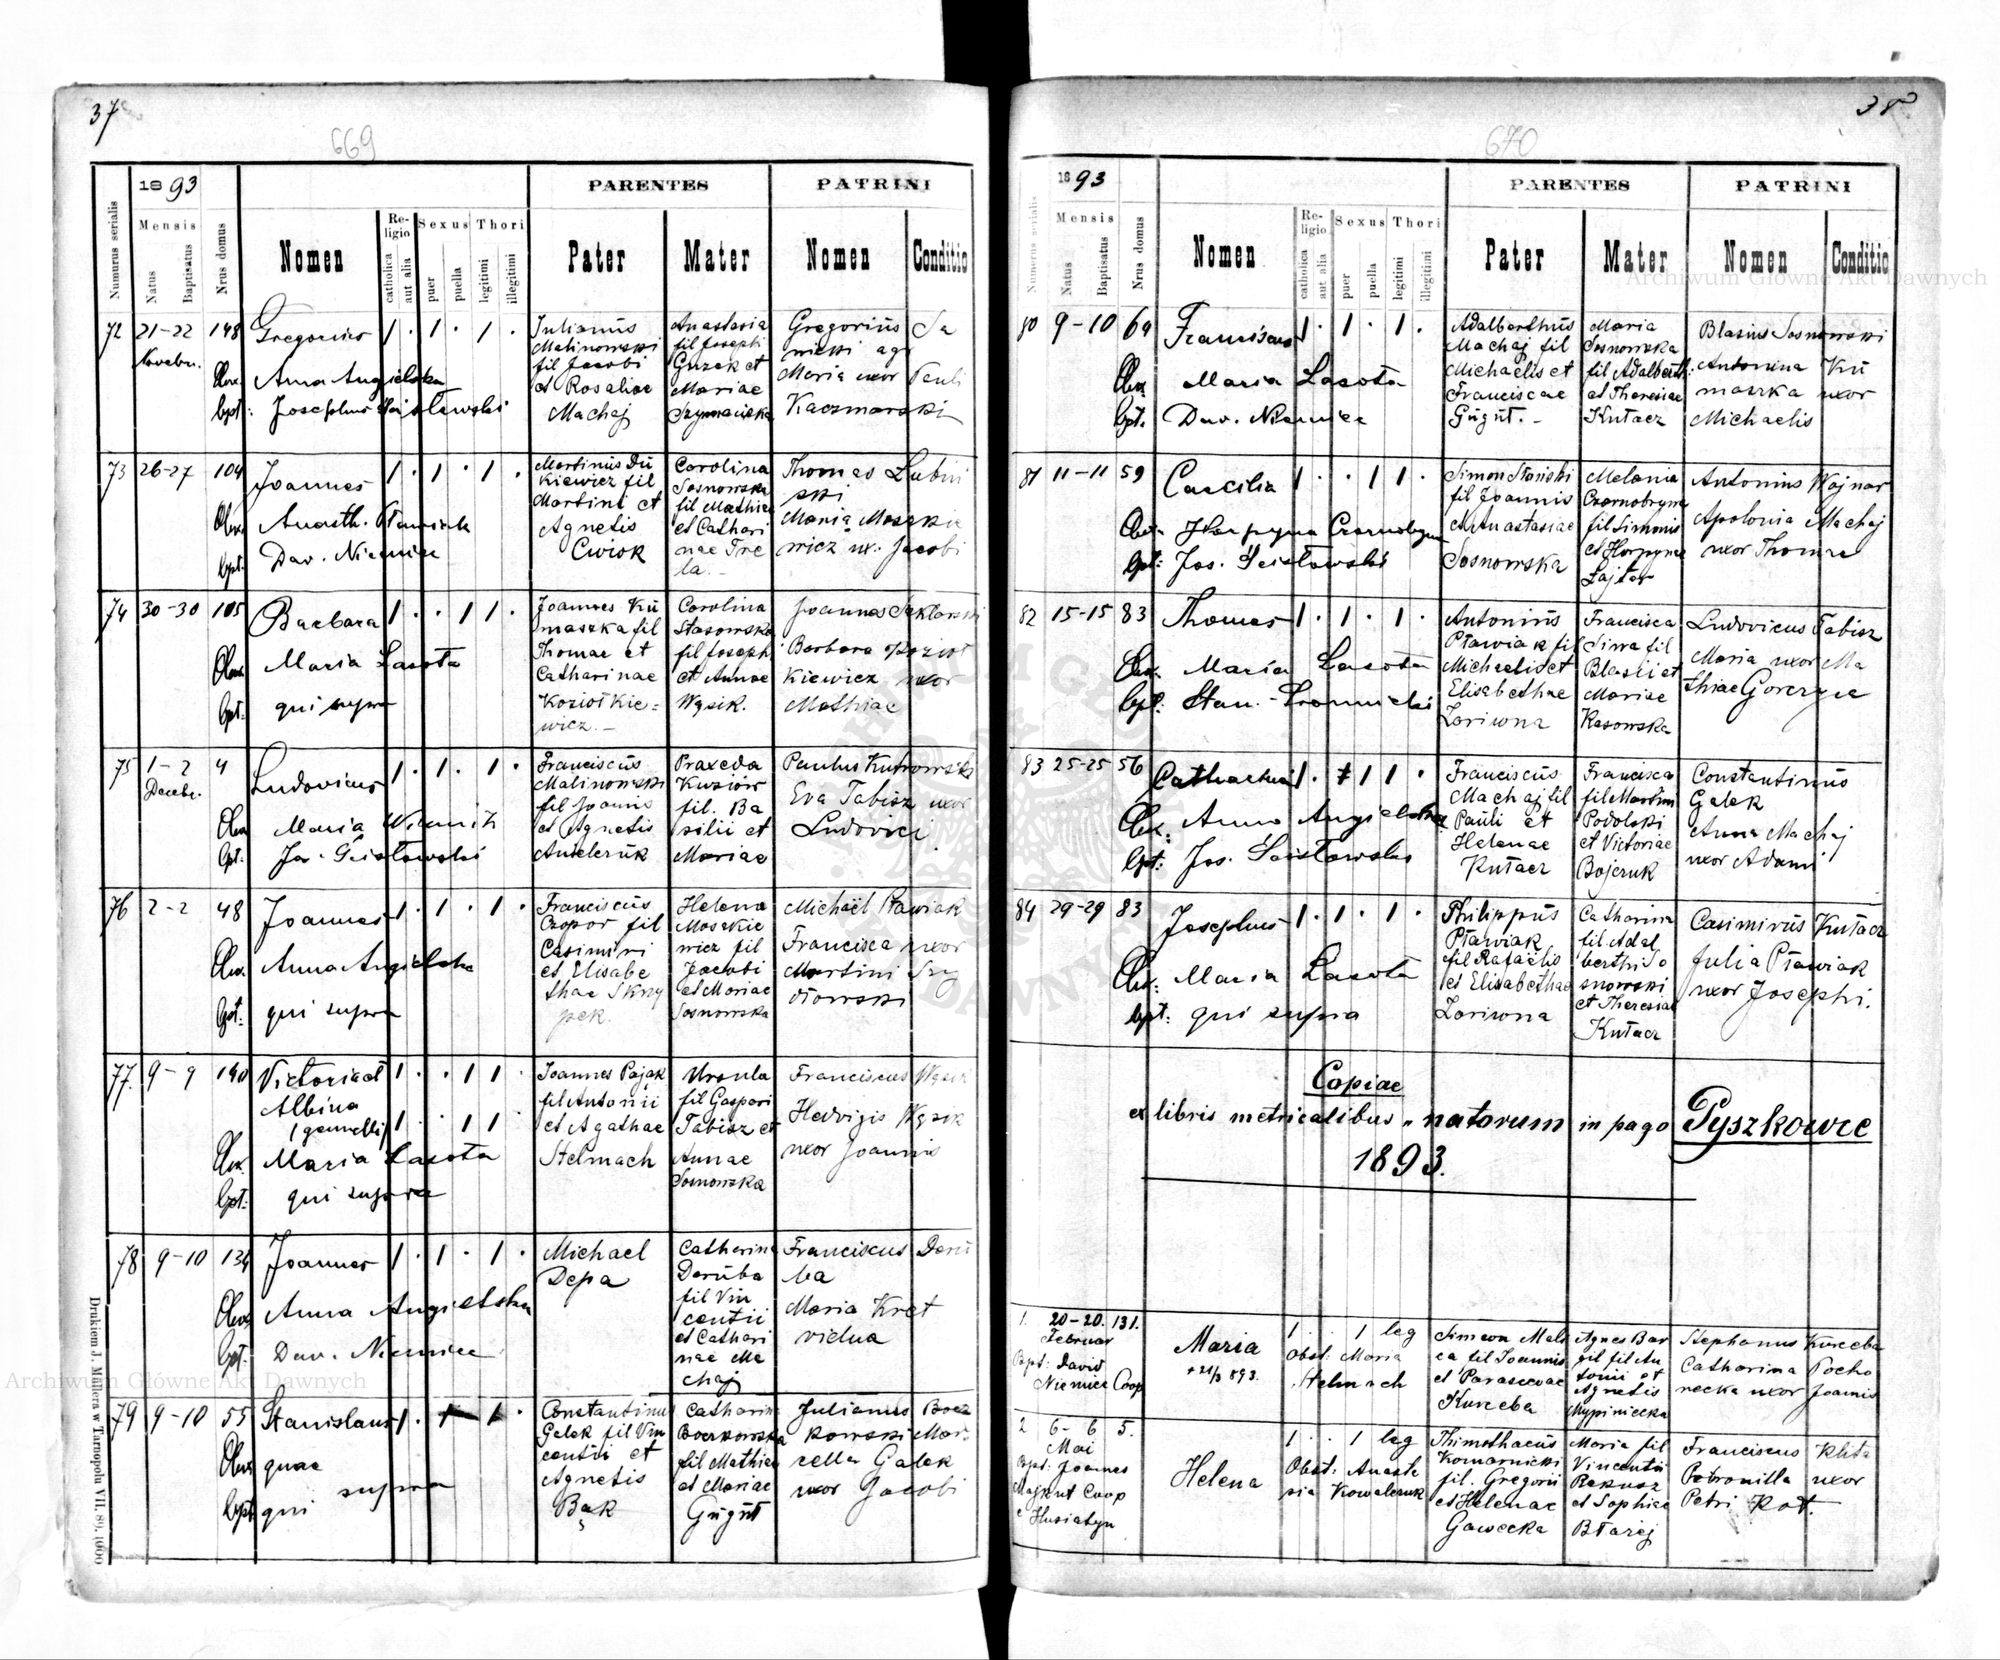 37
669
1893
PARENTES
PATRINI
Numurus serialis
Mensis
Natus
Baptisatus
Nrus domus
Nomen
Religio
catholica
aut alia
Sexus
puer
puella
Thori
legitimi
illegitimi
Pater
Mater
Nomen
Conditio
72 21-22 148 Gregorius 1 . 1 . 1 .
Novebr.
Anna Angielska
bpt: Josephus
Julianus
Malinowski
fil Jacobi
et Rosaliae
Machaj
Anastasia
fil Josephi
Guzek et
Mariae
Gregorius
Maria uxor Pauli
Kaczmarski
73 26-27 104 Joannes 1 . 1 . 1 .
Dav. Niemiec
Martinus Du
kiewicz fil
Martini et
Agnetis
Cwiok
Carolina
Sosnowska
fil Mathiae
et Cathari
nae Tre
la.
Thomas Lubin
ski
Maria Moszkie
wicz ux. Jacobi
74 30-30 105 Barbara 1 . . 1 1 .
Maria Lasota
bpt: qui supra
Joannes Ku
maszka fil
Thomae et
Catharinae
Koziołkie=
wicz.-
Carolina
Stasowska
fil Josephi
et Annae
Wąsik.
Joannes
Barbara Kozioł
kiewicz uxor
Mathiae
75 1-2 4 Ludovicus 1 . 1 . 1 .
Decebr.
Maria
Franciscus
Malinowski
fil Joannis
et Agnetis
Praxeda
Kuzior
fil. Ba
silii et
Mariae
Paulus Kurowski
Eva Tabisz uxor
Ludovici
76 2-2 48 Joannes 1 . 1 . 1 .
Anna Angielska
bpt: qui supra
Franciscus
Czopor fil
Casimiri
et Elisabe
thae Skrzy
pek.
Helena
Moszkie
wicz fil
Jacobi
et Mariae
Sosnowska
Michael Pławiak
Francisca uxor
Martini Szy
77. 9-9 140 Victoria et 1 . . 1 1
Albina
(gemelli) 1 . . 1 1
Maria Lasota
bpt: qui supra
Joannes Pająk
fil Antonii
et Agathae
Stelmach
Ursula
fil Gaspari
Tabisz et
Annae
Sosnowska
Franciscus Wąsik
Hedvigis Wąsik
uxor Joannis
78 9-10 134 Joannes 1 . 1 . 1 .
Anna Angielska
bpt: Dav. Niemiec
Michael
Depa
Catharina
Deruba
fil Vin
centii
et Cathari
nae Ma
chaj
Franciscus Deru
ba
Maria Kret
vidua
79 9-10 55 Stanislaus 1 . 1 . 1 .
quae
bpt qui supra
Constantinus
Galek fil Vin
centii et
Agnetis
Bąk
Catharina
Boczkowska
fil Mathiae
et Mariae
Gugut
Julianus Bocz
kowski Mar-
cella Galek
uxor Jacobi
Drukiem J. Müllera w Tarnopolu VII. 89. 4000
38
670
1893
PARENTES
PATRINI
Numerus serialis
Mensis
Natus
Baptisatus
Nrus domus
Nomen
Religio
catholica
aut alia
Sexus
puer
puella
Thori
legitimi
illegitimi
Pater
Mater
Nomen
Conditio
80 9-10 64 Franciscus 1 . 1 . 1 .
Maria Lasota
bpt. Dav. Niemiec
Adalberthus
Machaj fil
Michaelis et
Franciscae
Gugut.-
Maria
Sosnowska
fil Adalberth:
et Theresiae
Kułacz
Blasius Sosnowski
Antonina Ku
maszka uxor
Michaelis
81 11-11 59 Caecilia 1 . . 1 1 .
Horpyna
bpt: Jos.
Simon Słoński
fil Joannis
et Anastasiae
Sosnowska
Melania
fil Simonis
et Horpyna
Łajter
Antonius Wojnar
Apolonia Machaj
uxor Thomae
82 15-15 83 Thomas 1 . 1 . 1 .
Maria Lasota
bpt. Stan.
Antonius
Pławiak fil
Michaelis et
Elisabethae
Francisca
fil
Blasii et
Mariae
Kosowska
Ludovicus Tabisz
Maria uxor Ma
thiae
83 25-25 56 Catharina 1 . 1 1 .
Anna Angielska
bpt: Jos.
Franciscus
Machaj fil
Pauli et
Helenae
Kułacz
Francisca
fil Martini
Podolski
et Victoriae
Bojczuk
Constantinus
Galek
Anna Machaj
uxor Adami
84 29-29 83 Josephus 1 . 1 . 1 .
Maria Lasota
bpt: qui supra
Philippus
Pławiak
fil Rafaelis
et Elisabethae
Catharina
fil Adal
berthi So
snowski
et Theresiae
Kułacz
Casimirus Kułacz
Julia Pławiak
uxor Josephi.
Copiae
ex libris metricalibus natorum in pago Pyszkowce
1893.
1. 20-20. 131.
Februar
Bapt: David
Niemiec Coop
Maria
+ 21/3 893.
1 . . 1 leg
Obst: Maria
Stelmach
Simeon Mals
ca fil Joannis
et Parascevae
Kurceba
Agnes Bar
fil An
tonii et
Agnetis
Stephanus Kurceba
Catharina Pocho
recka uxor Joannis
2 6-6 5.
Mai
Bapt: Joannes
Coop
e Husiatyn
Helena
1 . . 1 leg
Obst: Anasta
sia Kowalczuk
Thimothaeus
Komarnicki
fil. Gregorii
et Helenae
Gawecka
Maria fil
Vincentii
Rakusz
et Sophiae
Błażej
Franciscus
Petronilla uxor
Petri Kot.
Archiwum Główne Akt Dawnych
Archiwum Główne Akt Dawnych